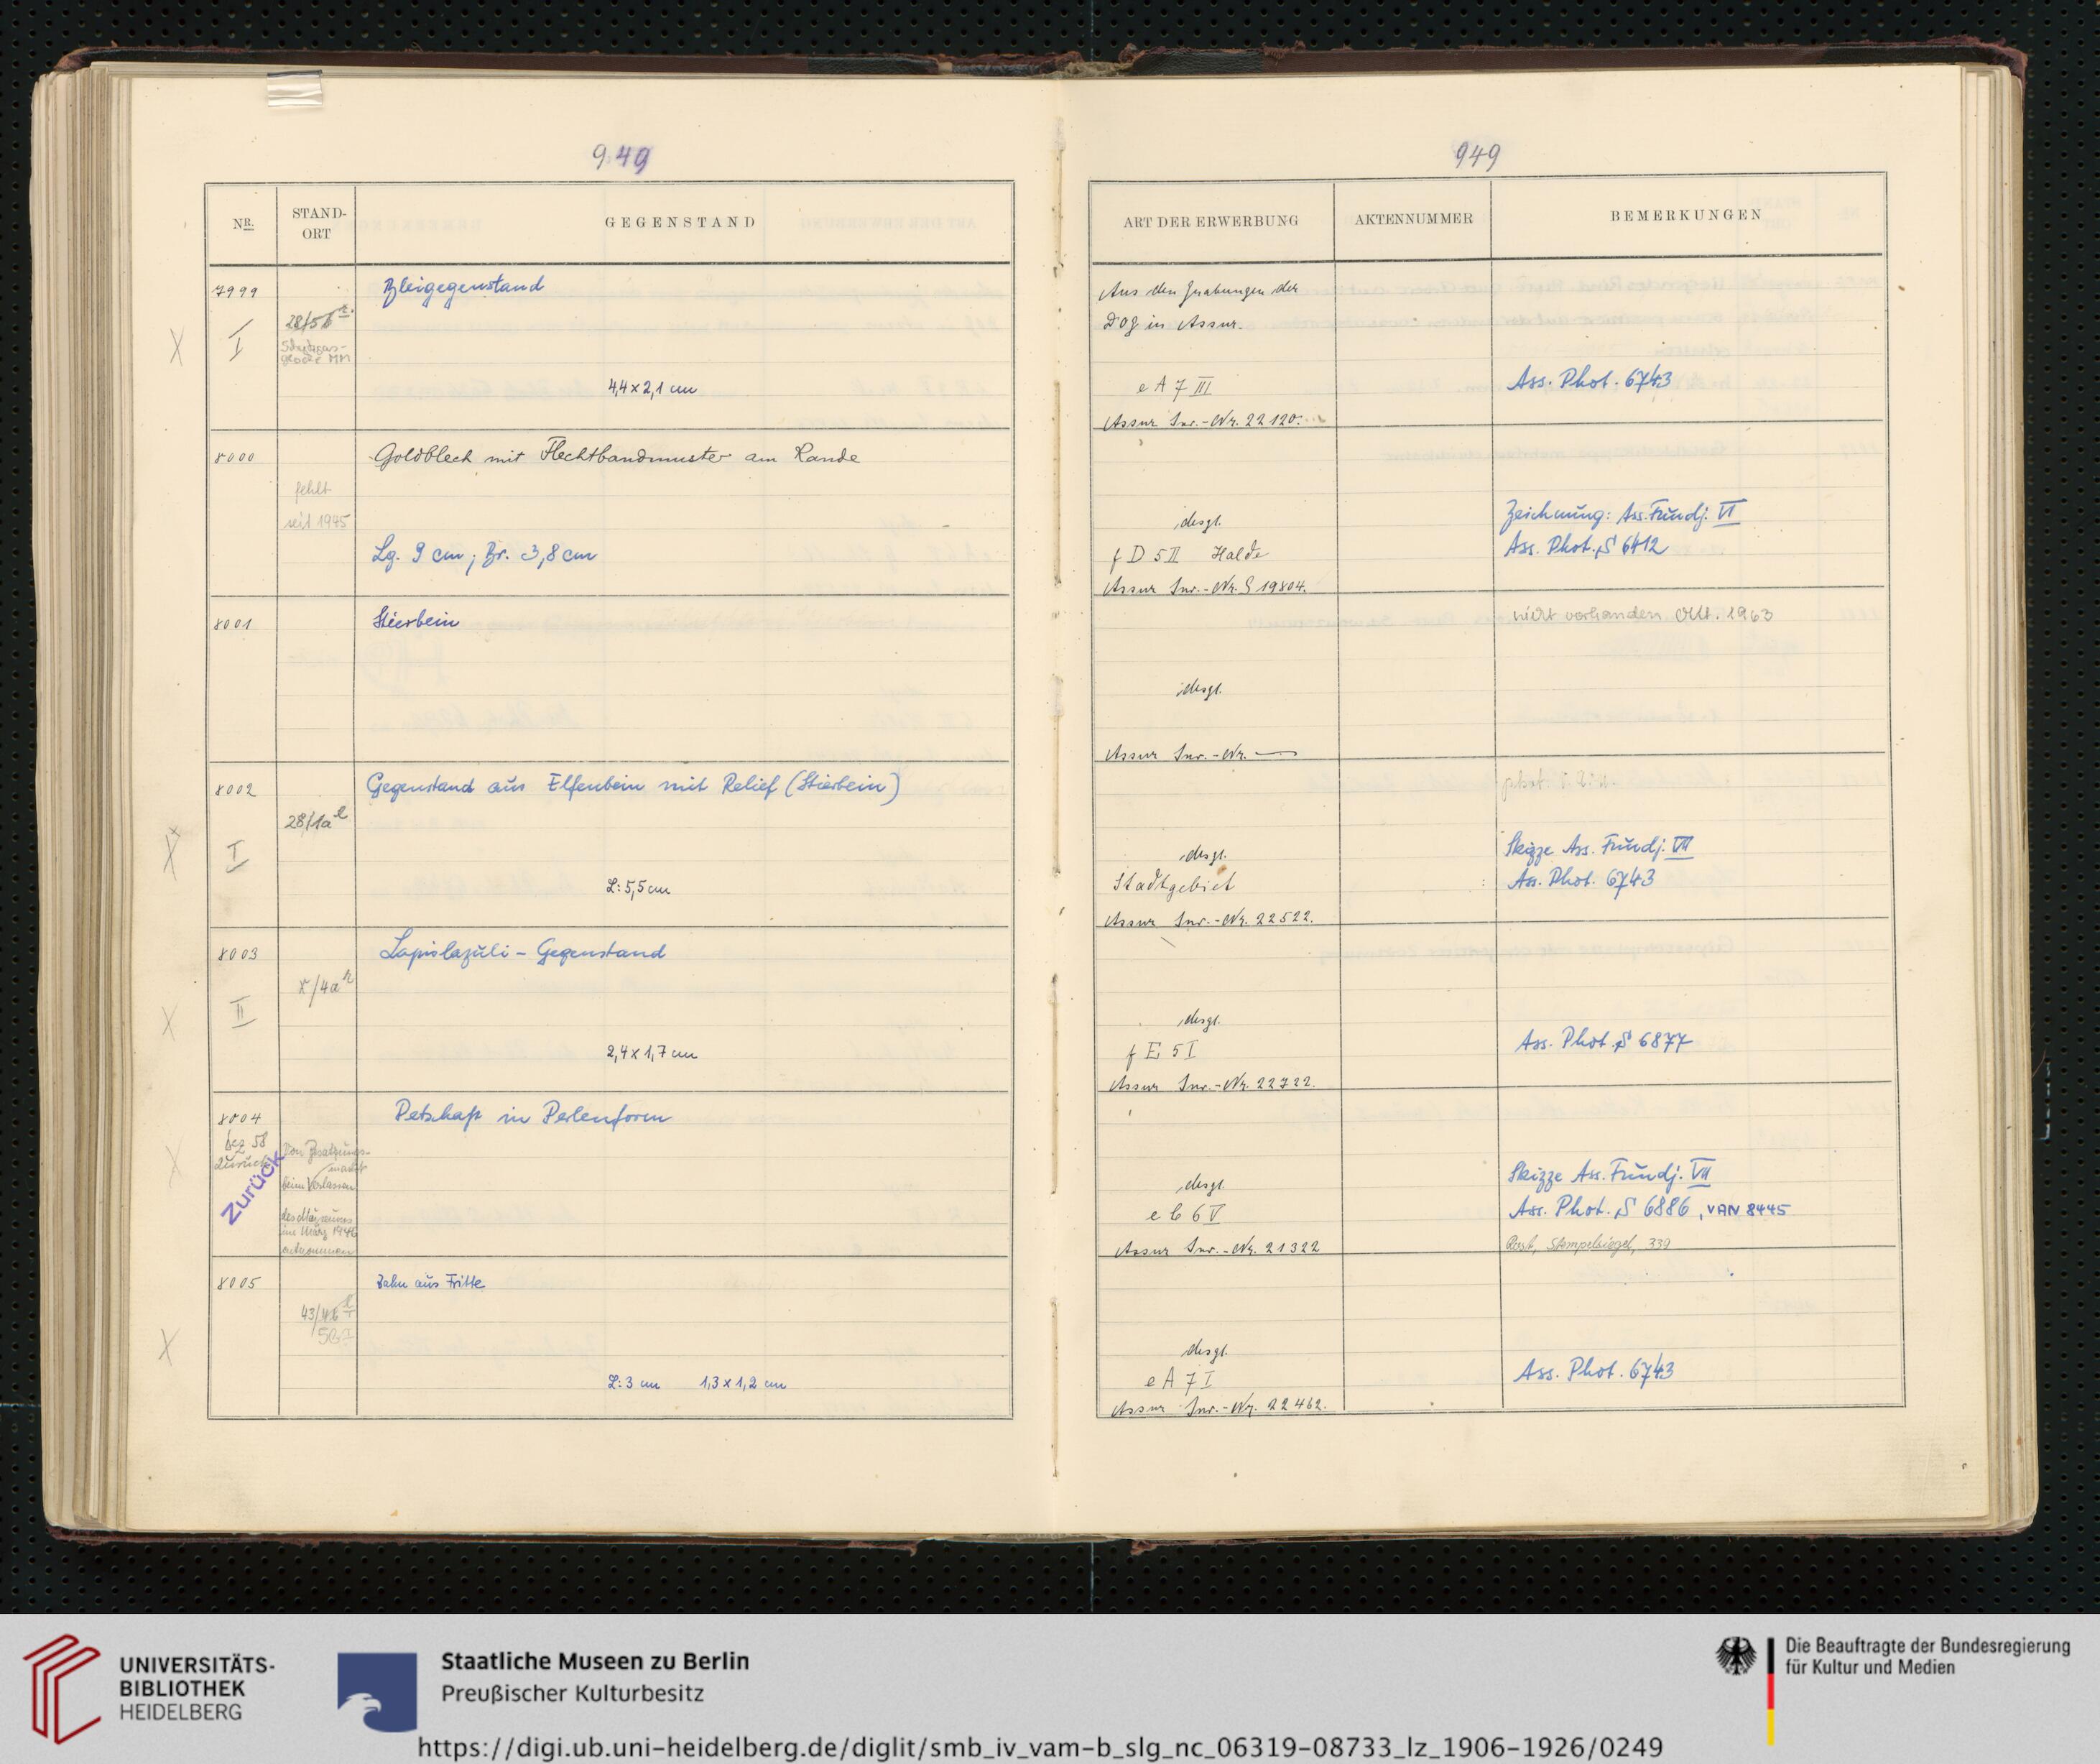 949
NR.
STAND-
ORT
GEGENSTAND
7999
I
28/5b
MM
Bleigegenstand
4,4 x 2,1 cm
8000
fehlt
seit 1945
Goldblech mit Flechtbandmuster am Rande
Lg. 9 cm; Br. 3,8 cm
8001
Stierbein
8002
I
28/1a
Gegenstand aus Elfenbein mit Relief (Stierbein)
L: 5,5 cm
8003
II
Lapislazuli - Gegenstand
2,4 x 1,7 cm
8004
58
zurück
Zurück
beim Verlassen
des Museums
im März 1946
entnommen
Petschaft in Perlenform
8005
43/4b
Zahn aus Fritte
L: 3 cm 1,3 x 1,2 cm
949
ART DER ERWERBUNG
AKTENNUMMER
BEMERKUNGEN
Aus den Grabungen der
DOG in Assur.
e A 7 III
Assur Inv.-Nr. 22120.
Ass. Phot. 6743
desgl.
f D 5 II Halde
Assur Inv.-Nr. S 19804.
Zeichnung: Ass. Fundj. VI
Ass. Phot. S 6412
nicht vorhanden Okt. 1963
desgl.
Assur Inv.-Nr. —
desgl.
Stadtgebiet
Assur Inv.-Nr. 22522.
phot.
Skizze Ass. Fundj. VII
Ass. Phot. 6743
desgl.
f E 5 I
Assur Inv.-Nr. 22722.
Ass. Phot. S 6877
desgl.
e b 6 V
Assur Inv.-Nr. 21322
Skizze Ass. Fundj. VII
Ass. Phot. S 6886, VAN 8445
Stempelsiegel, 339
desgl.
e A 7 I
Assur Inv.-Nr. 22462.
Ass. Phot. 6743
UNIVERSITÄTS-
BIBLIOTHEK
HEIDELBERG
Staatliche Museen zu Berlin
Preußischer Kulturbesitz
Die Beauftragte der Bundesregierung
für Kultur und Medien
https://digi.ub.uni-heidelberg.de/diglit/smb_iv_vam-b_slg_nc_06319-08733_lz_1906-1926/0249